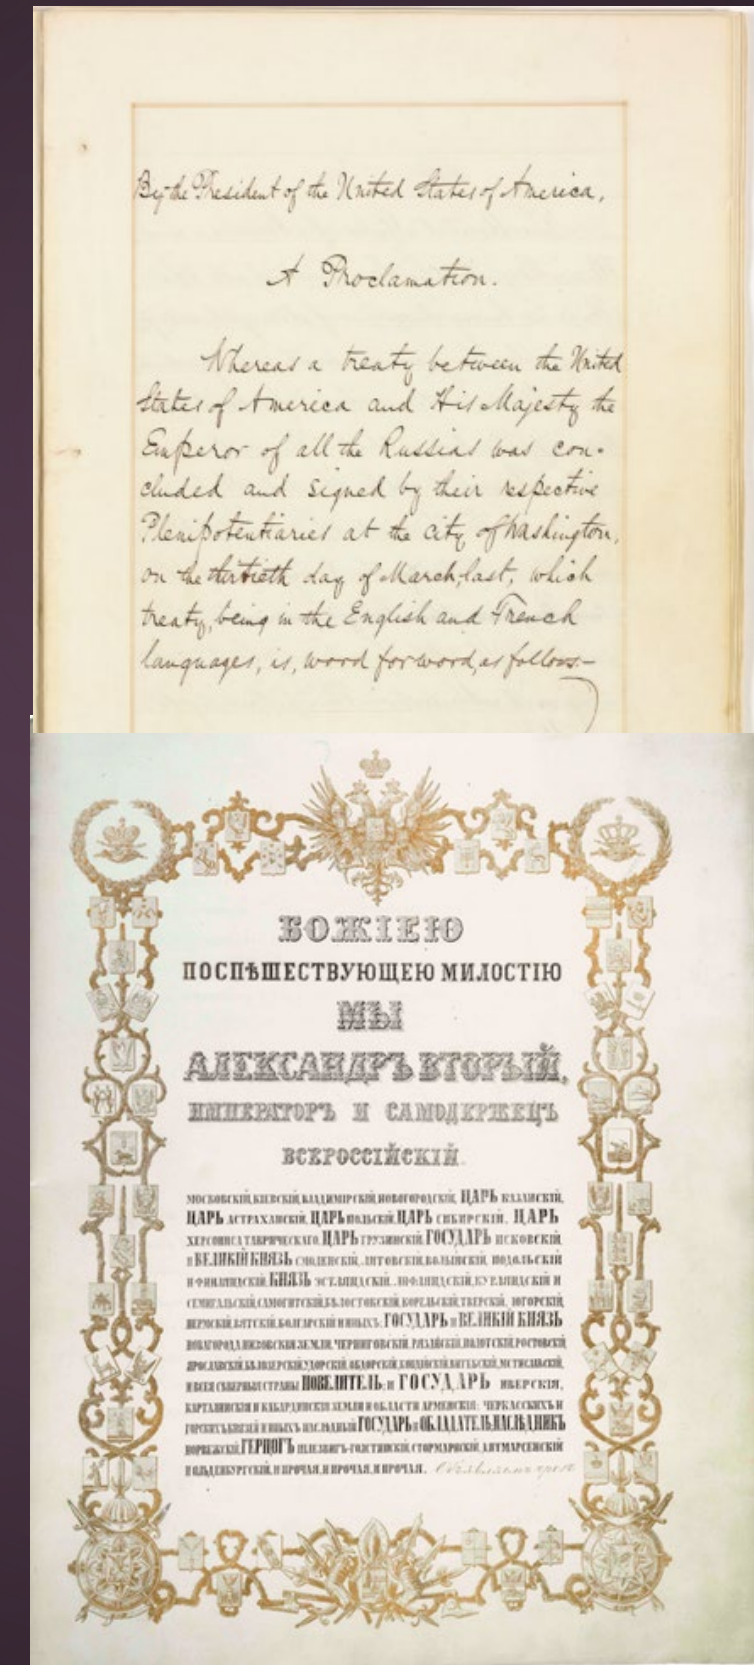 By the President of the United States of America,
A Proclamation.
Whereas a treaty between the United
States of America and His Majesty the
Emperor of all the Russias was con-
cluded and signed by their respective
Plenipotentiaries at the city of Washington,
on the thirtieth day of March, last, which
treaty, being in the English and French
languages, is, word for word, as follows:—
БОЖІЕЮ
ПОСПѢШЕСТВУЮЩЕЮ МИЛОСТІЮ
МЫ
АЛЕКСАНДРЪ ВТОРЫЙ,
ИМПЕРАТОРЪ И САМОДЕРЖЕЦЪ
ВСЕРОССІЙСКІЙ.
МОСКОВСКІЙ, КІЕВСКІЙ, ВЛАДИМІРСКІЙ, НОВОГОРОДСКІЙ, ЦАРЬ КАЗАНСКІЙ,
ЦАРЬ АСТРАХАНСКІЙ, ЦАРЬ ПОЛЬСКІЙ, ЦАРЬ СИБИРСКІЙ, ЦАРЬ
ХЕРСОНИСА ТАВРИЧЕСКАГО, ЦАРЬ ГРУЗИНСКІЙ, ГОСУДАРЬ ПСКОВСКІЙ
И ВЕЛИКІЙ КНЯЗЬ СМОЛЕНСКІЙ, ЛИТОВСКІЙ, ВОЛЫНСКІЙ, ПОДОЛЬСКІЙ
И ФИНЛЯНДСКІЙ, КНЯЗЬ ЭСТЛЯНДСКІЙ, ЛИФЛЯНДСКІЙ, КУРЛЯНДСКІЙ И
СЕМИГАЛЬСКІЙ, САМОГИТСКІЙ, БѢЛОСТОКСКІЙ, КОРЕЛЬСКІЙ, ТВЕРСКІЙ, ЮГОРСКІЙ,
ПЕРМСКІЙ, ВЯТСКІЙ, БОЛГАРСКІЙ И ИНЫХЪ, ГОСУДАРЬ И ВЕЛИКІЙ КНЯЗЬ
НОВАГОРОДА НИЗОВСКІЯ ЗЕМЛИ, ЧЕРНИГОВСКІЙ, РЯЗАНСКІЙ, ПОЛОТСКІЙ, РОСТОВСКІЙ,
ЯРОСЛАВСКІЙ, БѢЛОЗЕРСКІЙ, УДОРСКІЙ, ОБДОРСКІЙ, КОНДІЙСКІЙ, ВИТЕБСКІЙ, МСТИСЛАВСКІЙ,
И ВСЕЯ СѢВЕРНЫЯ СТРАНЫ ПОВЕЛИТЕЛЬ; И ГОСУДАРЬ ИВЕРСКІЯ,
КАРТАЛИНСКІЯ И КАБАРДИНСКІЯ ЗЕМЛИ И ОБЛАСТИ АРМЕНСКІЯ; ЧЕРКАССКИХЪ И
ГОРСКИХЪ КНЯЗЕЙ И ИНЫХЪ НАСЛѢДНЫЙ ГОСУДАРЬ И ОБЛАДАТЕЛЬ, НАСЛѢДНИКЪ
НОРВЕЖСКІЙ, ГЕРЦОГЪ ШЛЕЗВИГЪ-ГОЛСТИНСКІЙ, СТОРМАРНСКІЙ, ДИТМАРСЕНСКІЙ
И ОЛЬДЕНБУРГСКІЙ, И ПРОЧАЯ, И ПРОЧАЯ, И ПРОЧАЯ. Объявляемъ чрезъ